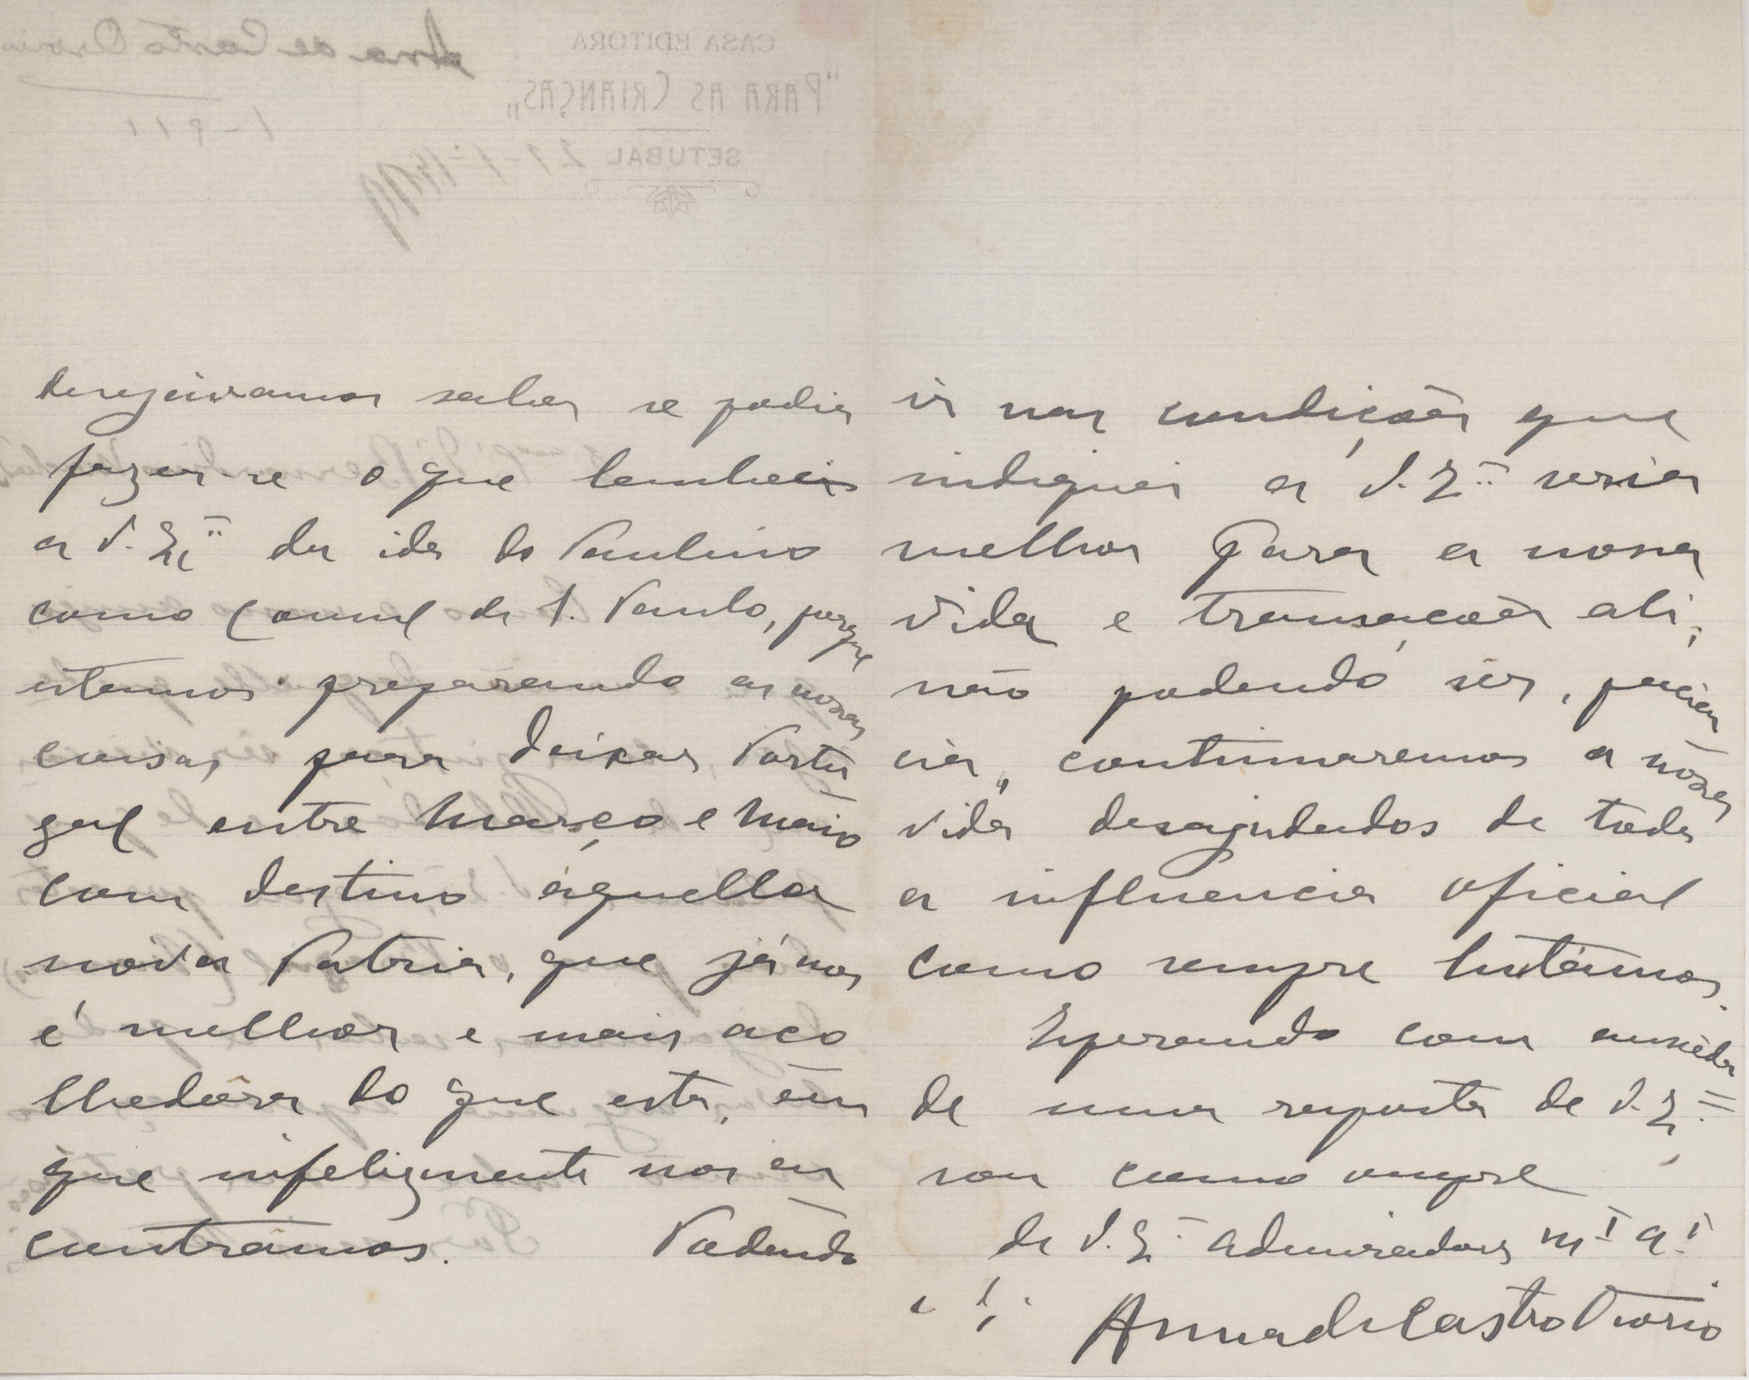 desejavamos saber se podia
fazer-se o que lembrei
a V. Exª da ida do Paulino
como Consul de S. Paulo, porque
estamos preparando as nossas
coisas, para deixar Portu
gal entre Março e Maio
com destino áquella
nova Patria, que já nos
é melhor e mais aco
lhedôra do que esta, em
que infelizmente nos en
contrâmos. Podendo
ir nas condições que
indiquei a V. Exª seria
melhor para a nossa
vida e transacções ali;
não podendo ser, pacien
cia, continuaremos a nossa
vida desajudados de toda
a influencia oficial
como sempre lutámos.
Esperando com anciêda
de uma resposta de V. Exª
sou como sempre
de V. Exª admiradora mᵗ aᵗ
Anna de Castro Osorio
CASA EDITORA
"PARA AS CRIANÇAS"
SETUBAL
Ana de Castro Osorio